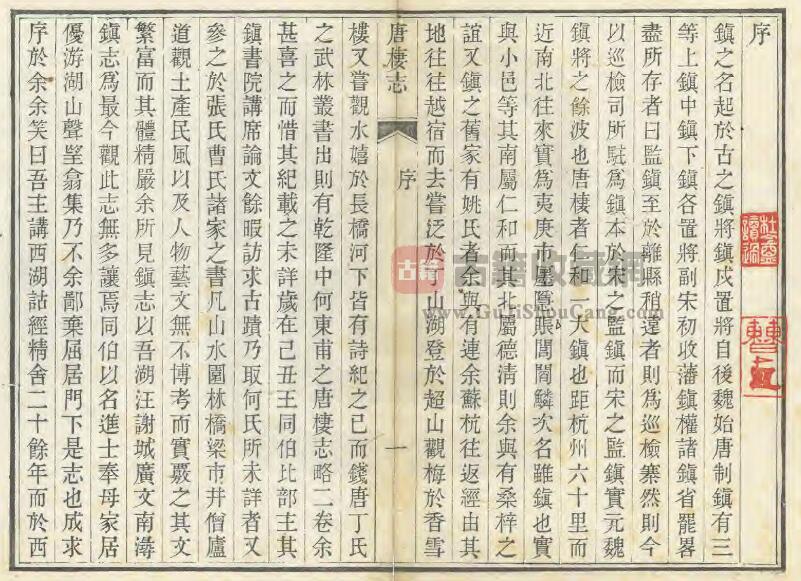 序
鎮之名起於古之鎮將鎮戍置將自後魏始唐制鎮有三
等上鎮中鎮下鎮各置將副宋初收藩鎮權諸鎮省罷畧
盡所存者曰監鎮至於離縣稍遠者則爲巡檢寨然則今
以巡檢司所駐爲鎮本於宋之監鎮而宋之監鎮實元魏
鎮將之餘波也唐棲者仁和一大鎮也距杭州六十里而
近南北往來實爲夷庚市廛鱗賬閭閻鱗次名雖鎮也實
與小邑等其南屬仁和而其北屬德清則余與有桑梓之
誼又鎮之舊家有姚氏者余與有連余蘇杭往返經由其
地往往越宿而去嘗泛於丁山湖登於超山觀梅於香雪
唐棲志
序
一
樓又嘗觀水嬉於長橋河下皆有詩紀之已而錢唐丁氏
之武林叢書出則有乾隆中何東甫之唐棲志略二卷余
甚喜之而惜其紀載之未詳歲在己丑王同伯比部主其
鎮書院講席論文餘暇訪求古蹟乃取何氏所未詳者又
參之於張氏曹氏諸家之書凡山水園林橋梁市井僧廬
道觀土產民風以及人物藝文無不博考而實覈之其文
繁富而其體精嚴余所見鎮志以吾湖汪謝城廣文南潯
鎮志爲最今觀此志無多讓焉同伯以名進士奉母家居
優游湖山聲望翕集乃不余鄙棄屈居門下是志也成求
序於余余笑曰吾主講西湖詁經精舍二十餘年而於西
古籍收藏網
www.GuJiShouCang.com